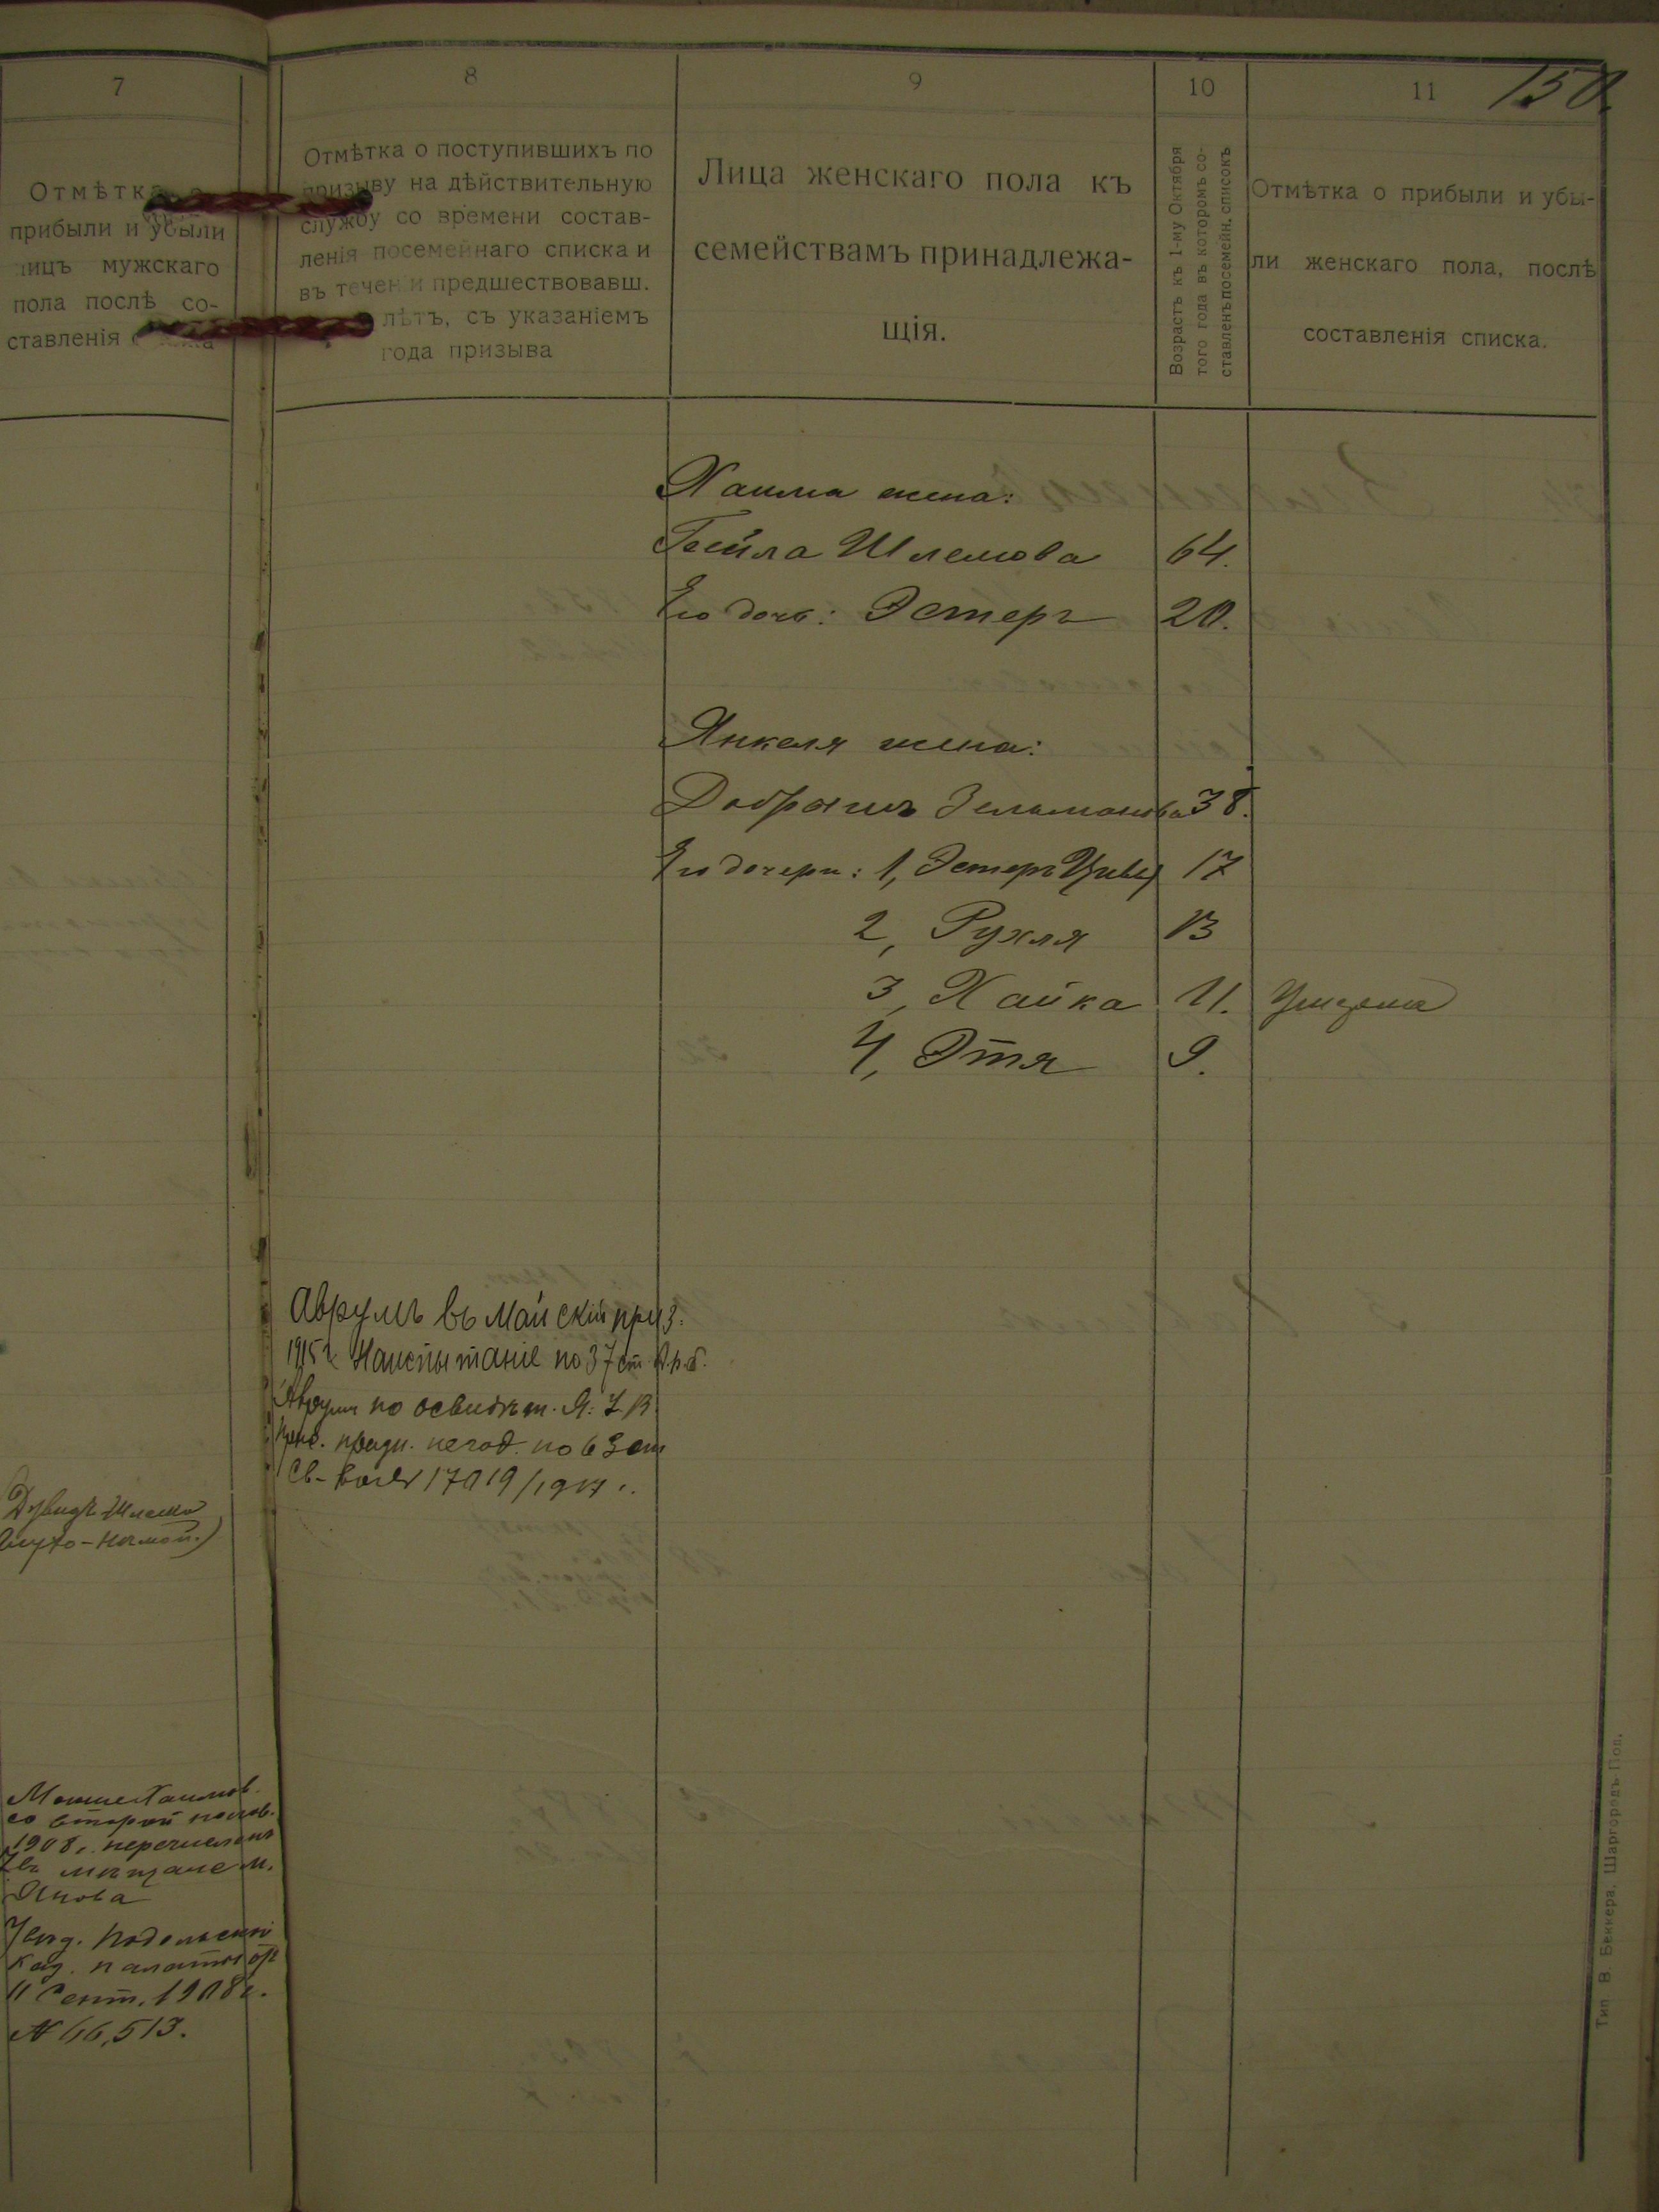 7
8
9
10
11
150.
Отмѣтка о
прибыли и убыли
лицъ мужскаго
пола послѣ со-
ставленія
Отмѣтка о поступившихъ по
призыву на дѣйствительную
службу со времени состав-
ленія посемейнаго списка и
въ теченіи предшествовавш.
лѣтъ, съ указаніемъ
года призыва
Лица женскаго пола къ
семействамъ принадлежа-
щія.
Возрастъ къ 1-му Октября
того года въ которомъ со-
ставленъ посемейн. списокъ
Отмѣтка о прибыли и убы-
ли женскаго пола, послѣ
составленія списка.
Хаима жена:
Бейла Шлемова 64.
Его дочь: Эстеръ 20.
Янкеля жена:
Добрышъ Зельманова 38.
Его дочери: 1, Эстеръ Цивья 17
2, Рухля 13
3, Хайка 11. Умерла
4, Этя 9.
Аврумъ въ Майскій приз.
1915 г. На испытаніе по 37 ст.
Аврумъ по освидѣт.
призн. негод. по 63 ст
Дувидъ-Шлема
глухо-нѣмой.)
Мошко Хаимов.
со второй полов.
1908 г. перечисленъ
въ мѣщане м.
Янова
Увѣд. Подольской
Каз. палаты отъ
11 Сент. 1908 г.
№ 46,513.
Тип. В. Беккера, Шаргородъ Под.